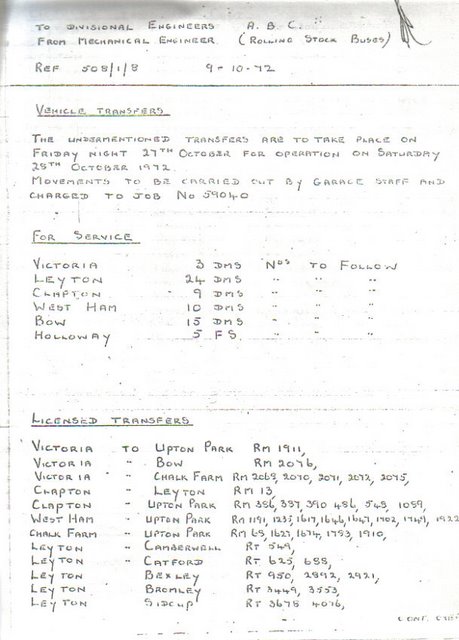 TO DIVISIONAL ENGINEERS A. B. C.
FROM MECHANICAL ENGINEER (ROLLING STOCK BUSES)
REF 508/1/8 9-10-72
VEHICLE TRANSFERS
THE UNDERMENTIONED TRANSFERS ARE TO TAKE PLACE ON
FRIDAY NIGHT 27TH OCTOBER FOR OPERATION ON SATURDAY
28TH OCTOBER 1972.
MOVEMENTS TO BE CARRIED OUT BY GARAGE STAFF AND
CHARGED TO JOB No 59040
FOR SERVICE
VICTORIA 3 DMS Nos TO FOLLOW
LEYTON 24 DMS " " "
CLAPTON 9 DMS " " "
WEST HAM 10 DMS " " "
BOW 15 DMS " " "
HOLLOWAY 5 FS
LICENSED TRANSFERS
VICTORIA TO UPTON PARK RM 1911,
VICTORIA " BOW RM 2076,
VICTORIA " CHALK FARM RM 2068, 2070, 2071, 2072, 2075,
CLAPTON " LEYTON RM 13,
CLAPTON " UPTON PARK RM 386, 387, 390 486, 548, 1089,
WEST HAM " UPTON PARK RM 1191, 1235, 1617, 1646, 1647, 1702, 1749, 1922
CHALK FARM " UPTON PARK RM 68, 1627, 1674, 1783, 1910,
LEYTON " CAMBERWELL RT 549,
LEYTON " CATFORD RT 625, 688,
LEYTON " BEXLEY RT 950, 2892, 2921,
LEYTON " BROMLEY RT 3449, 3553,
LEYTON " SIDCUP RT 3678 4076,